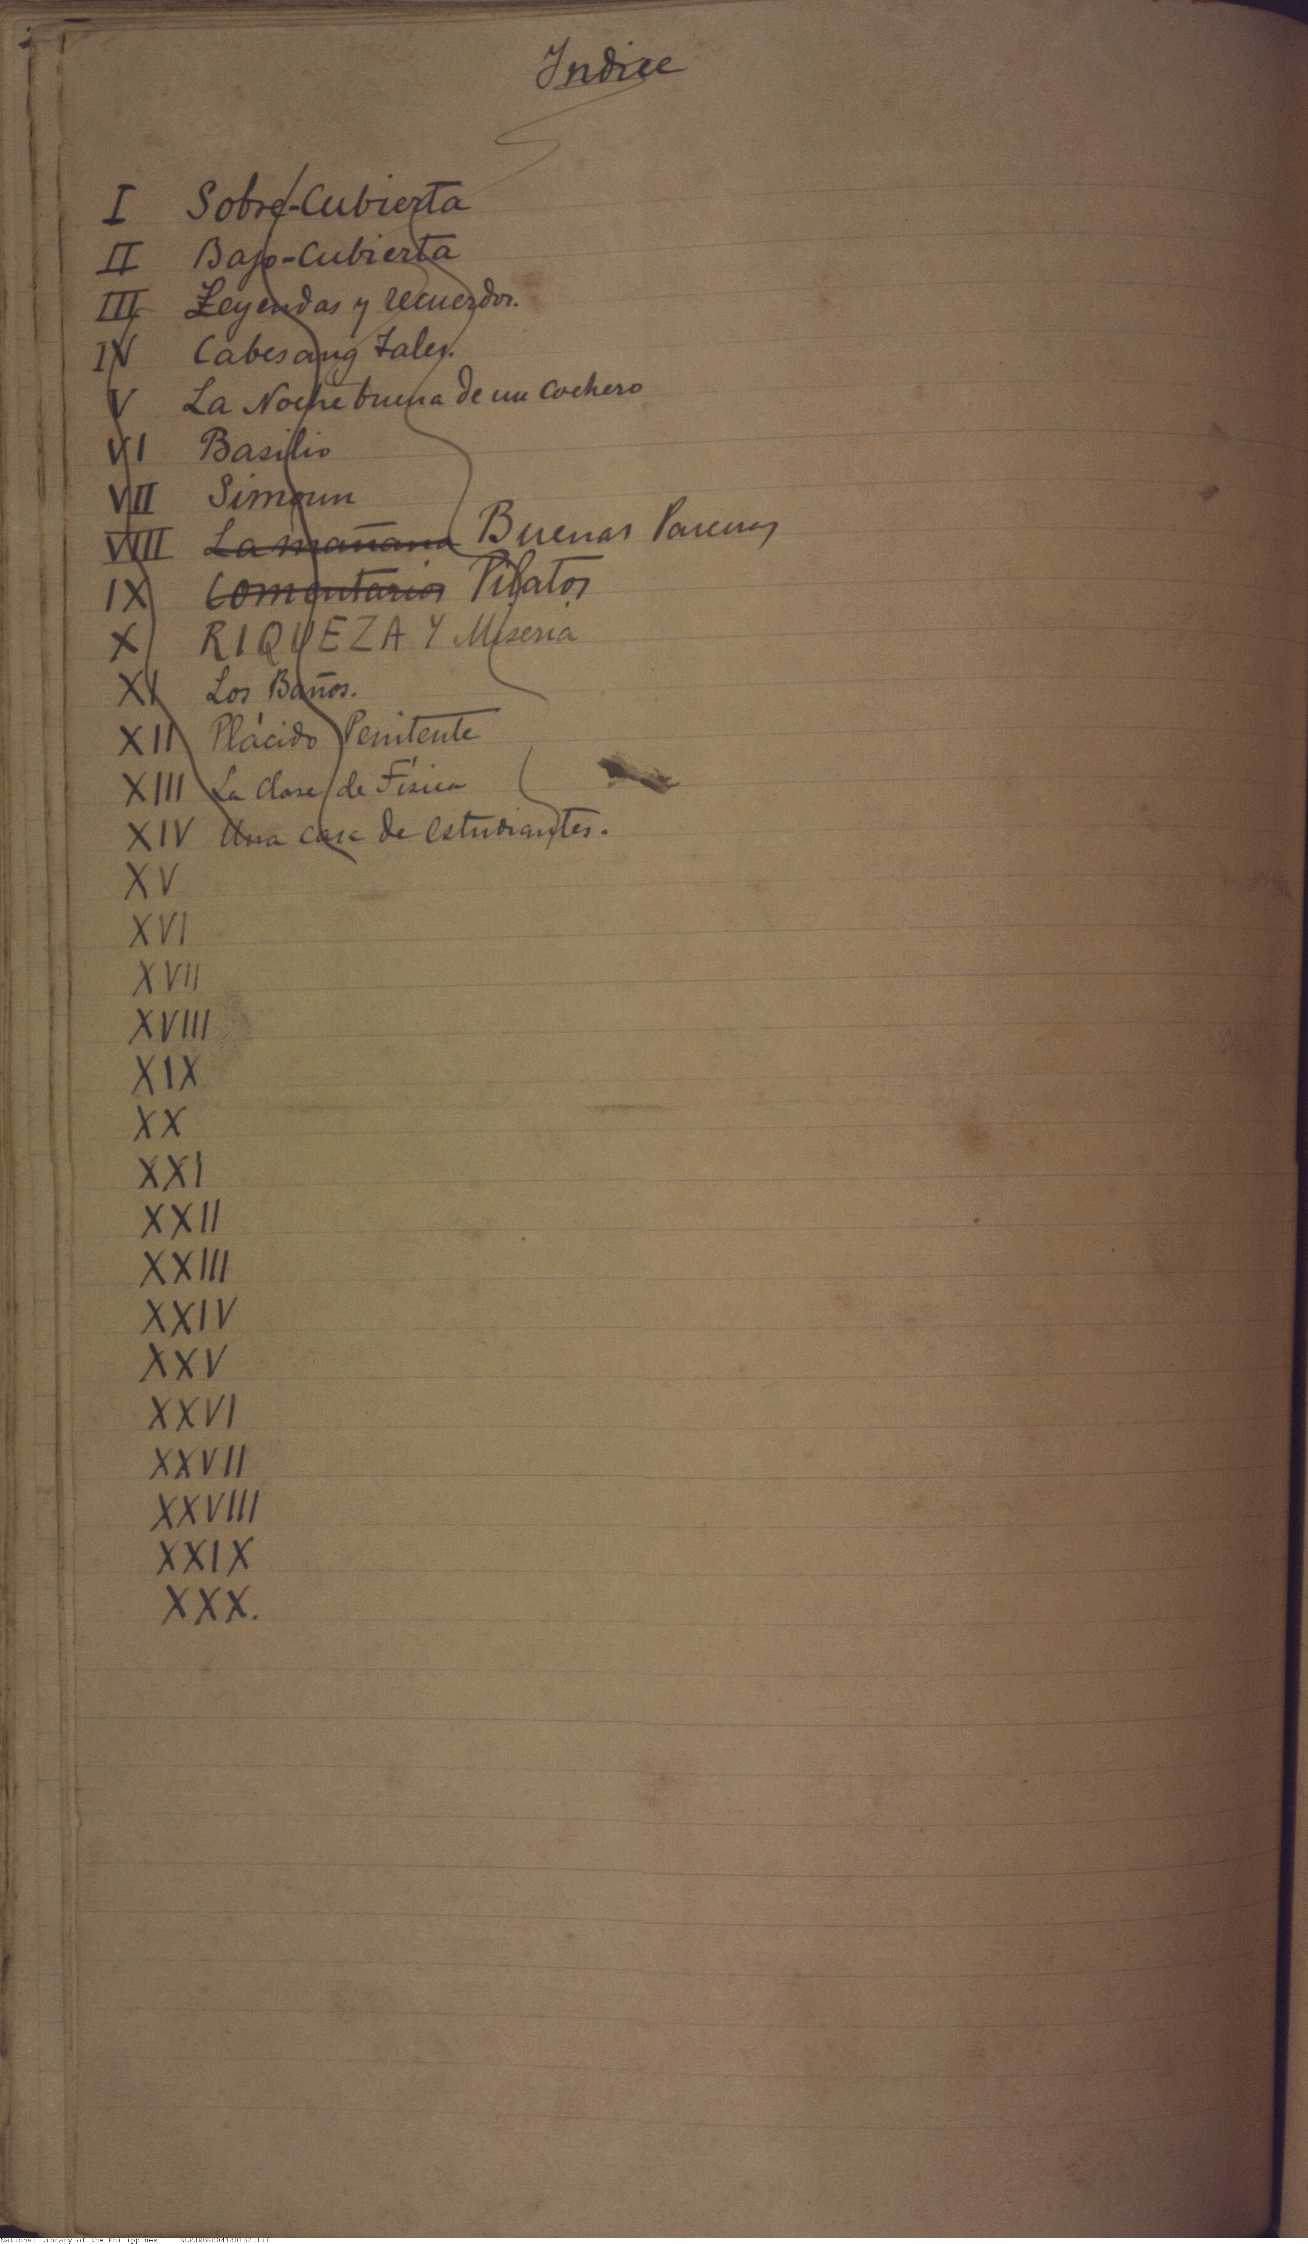 Indice
I Sobre-Cubierta
II Bajo-Cubierta
III Leyendas y recuerdos.
IV Cabesang Tales.
V La Noche buena de un cochero
VI Basilio
VII Simoun
VIII La mañana Buenas Pascuas
IX Comentarios Pilatos
X RIQUEZA Y Miseria
XI Los Baños.
XII Plácido Penitente
XIII La Clase de Física
XIV Una casa de estudiantes.
XV
XVI
XVII
XVIII
XIX
XX
XXI
XXII
XXIII
XXIV
XXV
XXVI
XXVII
XXVIII
XXIX
XXX.
National Library of the Philippines